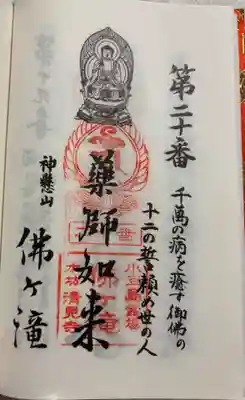 第二十番
千萬の病を癒す御佛の
十二の誓頼め世の人
藥師如来
神懸山
佛ヶ滝
小豆島霊場
佛ヶ滝
本坊清見寺